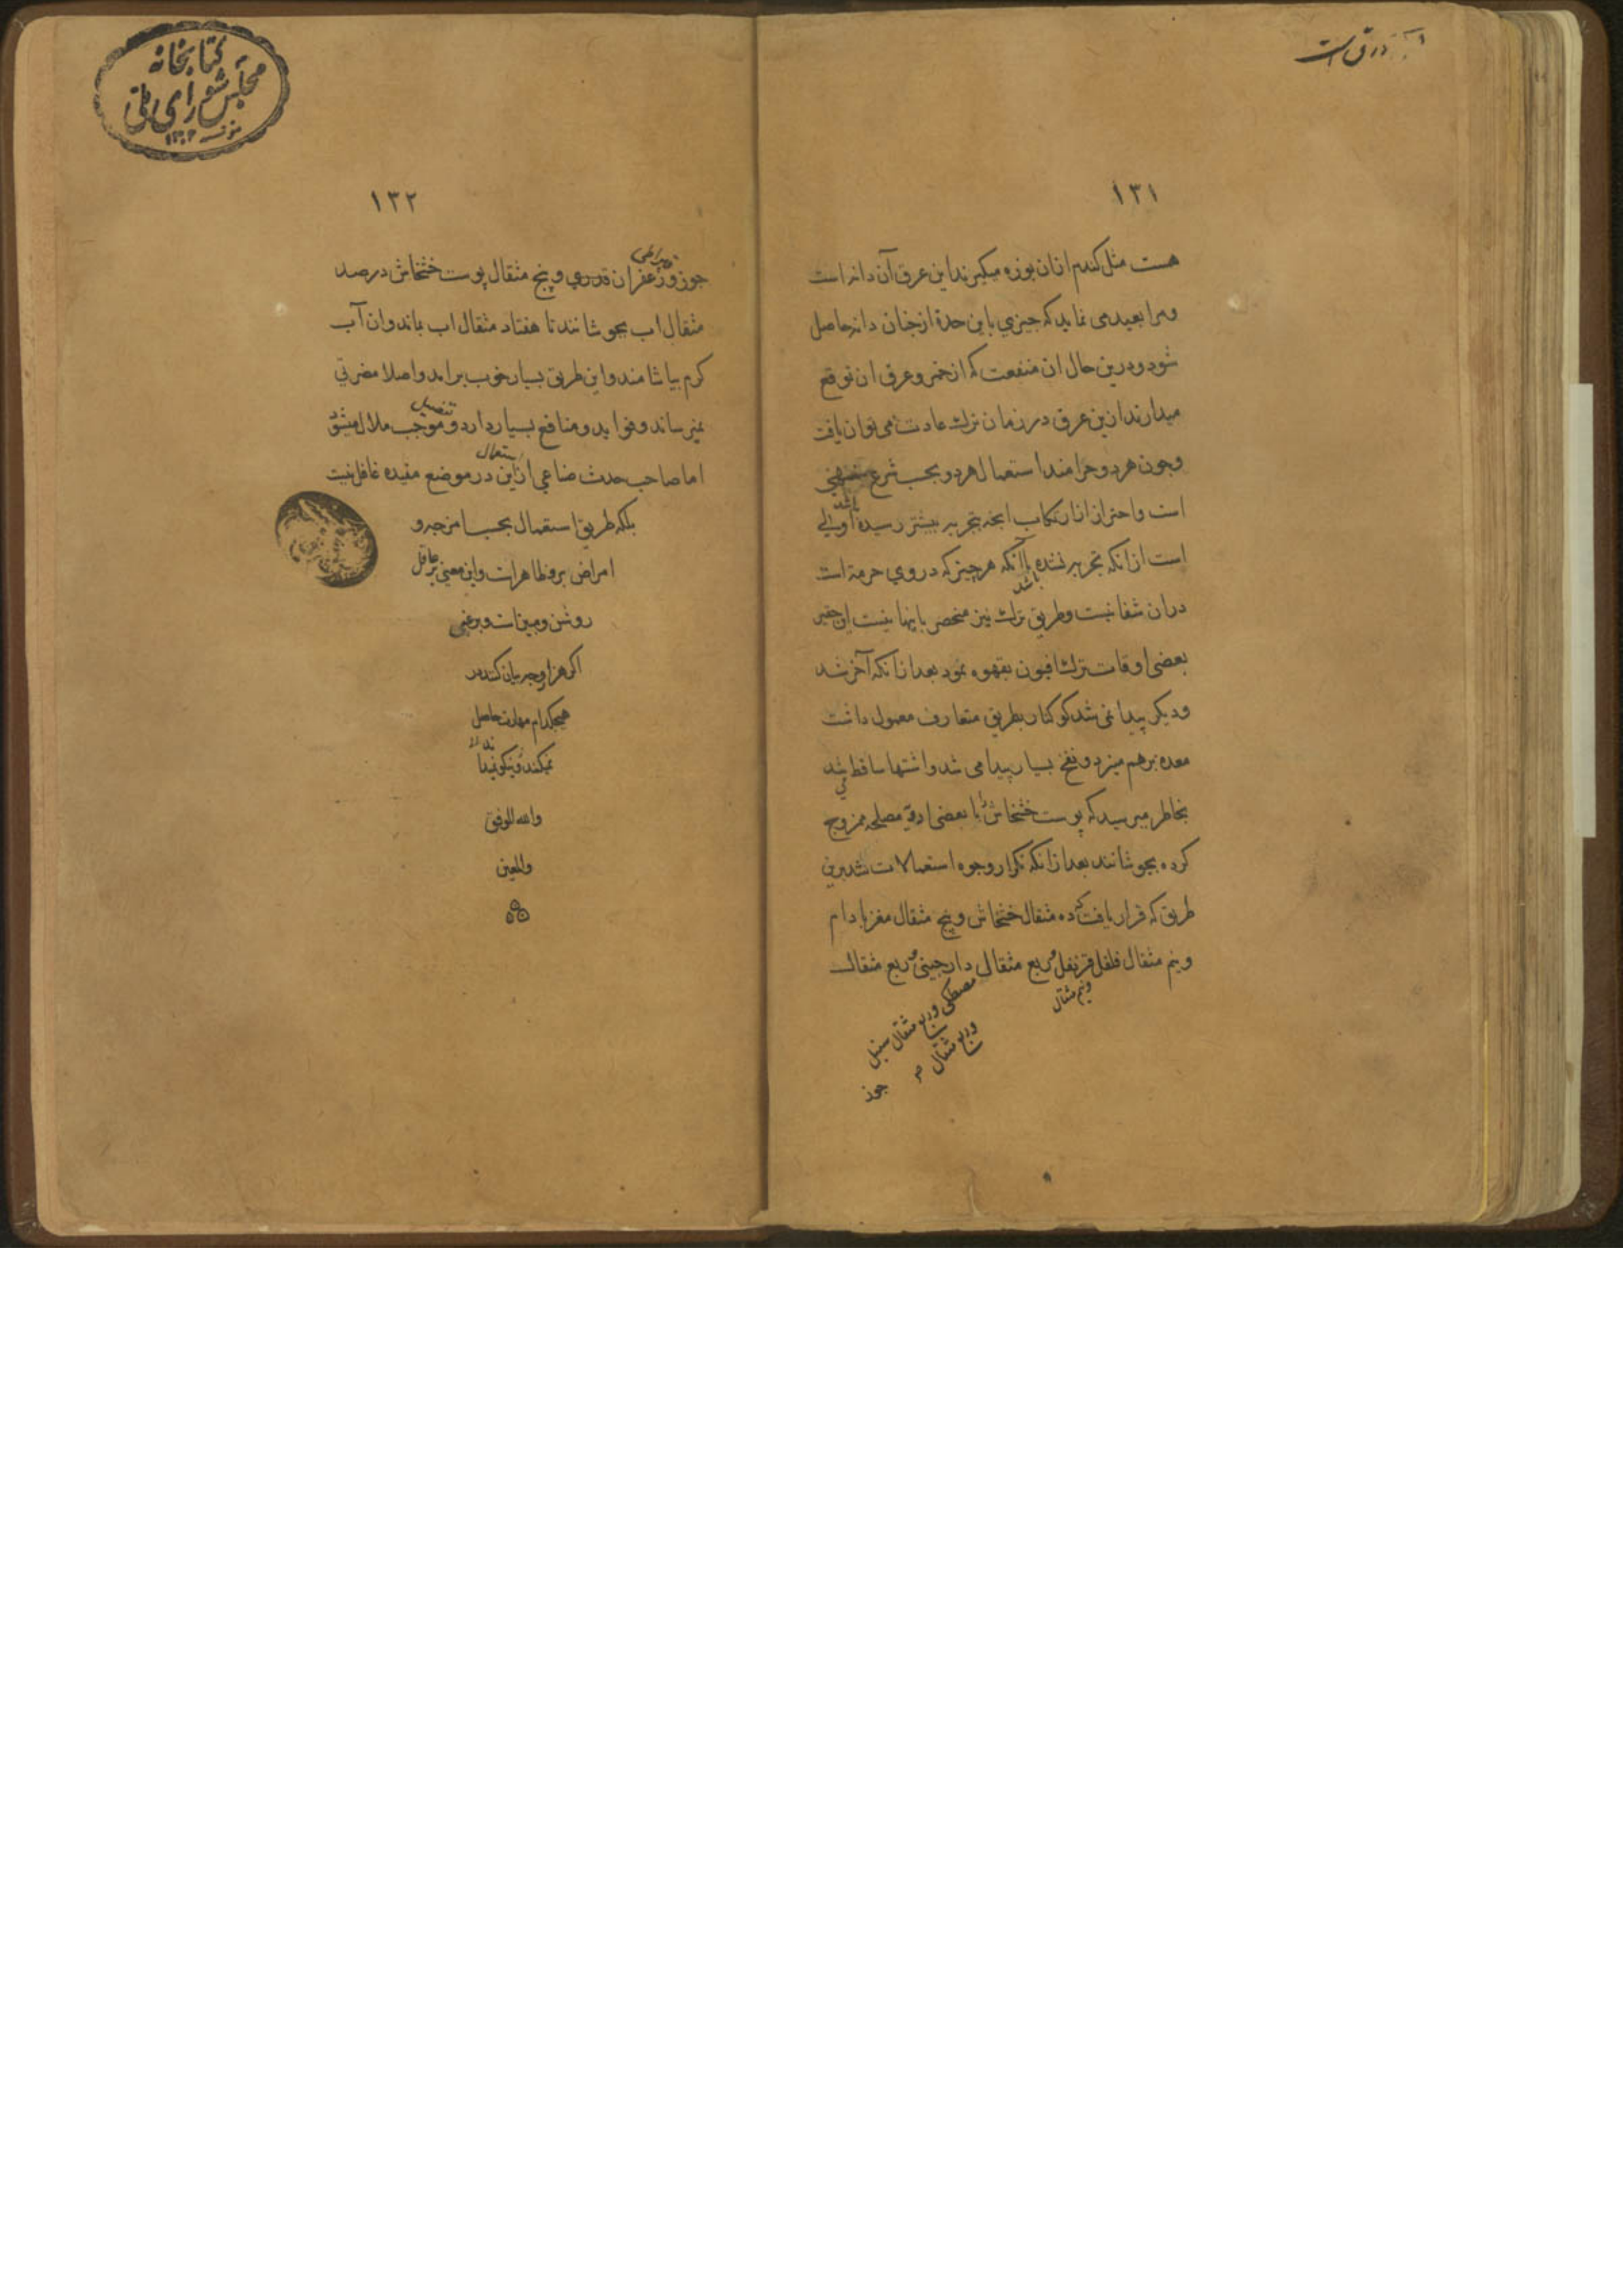 ۱۳۱
هست مثل کندم ازان بوزه میکیرند این عرق آن دانه است
ومرا بعید می نماید که چیزی باین حدة ازچنان دانه حاصل
شود ودرین حال ان منفعت که ازخمر وعرق ان توقع
میدارند ازین عرق درزمان ترك عادت نمی توان یافت
وچون هردو حرامند استعمال هردو بحسب شرع منهی
است واحتراز از ارتکاب انچه بتجربه بیشتر رسیده باشد اولی
است ازانکه تجربه نشده باشد باآنکه هرچیز که دروی حرمة است
دران شفا نیست وطریق ترك نیز منحصر باینها نیست این حقیر
بعضی اوقات ترك افیون بقهوه نمود بعد ازانکه آخر شد
ودیکر پیدا نمی شد کوکنار بطریق متعارف معمول داشت
معده برهم میزد ونفخ بسیار پیدا می شد واشتها ساقط می شد
بخاطر میرسید که پوست خشخاش را با بعضی ادویة مصلحه ممزوج
کرده بجوشانند بعد ازانکه تکرار وجوه استعمالات شد برین
طریق که قرار یافت که ده مثقال خشخاش وپنج مثقال مغز بادام
ونیم مثقال فلفل قرنفل وربع مثقال دارچینی وربع مثقال
ونیم مثقال
مصطکی وربع مثقال سنبل
وربع مثقال
جوز
۱۳۲
جوز وزعفران قدری وپنج مثقال پوست خشخاش درصد
مثقال اب بجوشانند تا هفتاد مثقال اب بماند وان آب
کرم بیاشامند واین طریق بسیار خوب برامد واصلا مضرتی
نمیرساند وفواید ومنافع بسیار دارد وتفصیل موجب ملال میشود
اما صاحب حدث صناعی ازاین استعمال درموضع مفیده غافل نیست
بلکه طریق استعمال بحسب امزجه و
امراض برو ظاهراست واین معنی برعاقل
روشن ومبین است وبرغبی
اکر هزار وجه بیان کنند در
هیچکدام مهارت حاصل
نمیکند ونیکو نمیداند
والله الموفق
والمعین
کتابخانه
مجلس شورای ملی